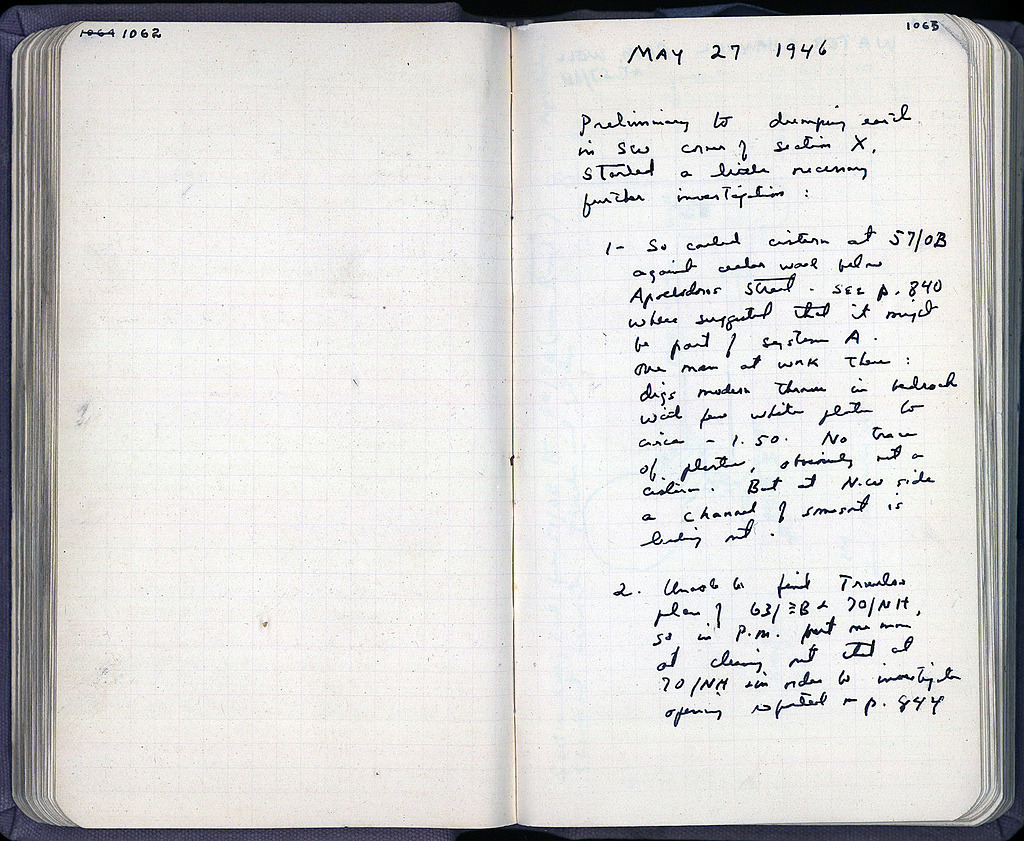 1064 1062
1063
MAY 27 1946
Preliminary to dumping earth
in SW corner of section X,
Started a little necessary
further investigation :
1- So called cistern at 57/ΟΒ
against ... wall below
Apollodoros Street - see p. 840
where suggested that it might
be part of system A.
One man at work there :
digs modern ... in bedrock
with few white ... to
circa - 1.50. No trace
of plaster, obviously not a
cistern. But at N.W side
a channel of some sort is
leading out.
2. Unable to find Travlos
plan of 63/ΞΒ & 70/ΝΗ,
so in P.M. put one man
at clearing out that at
70/ΝΗ in order to investigate
opening reported on p. 844